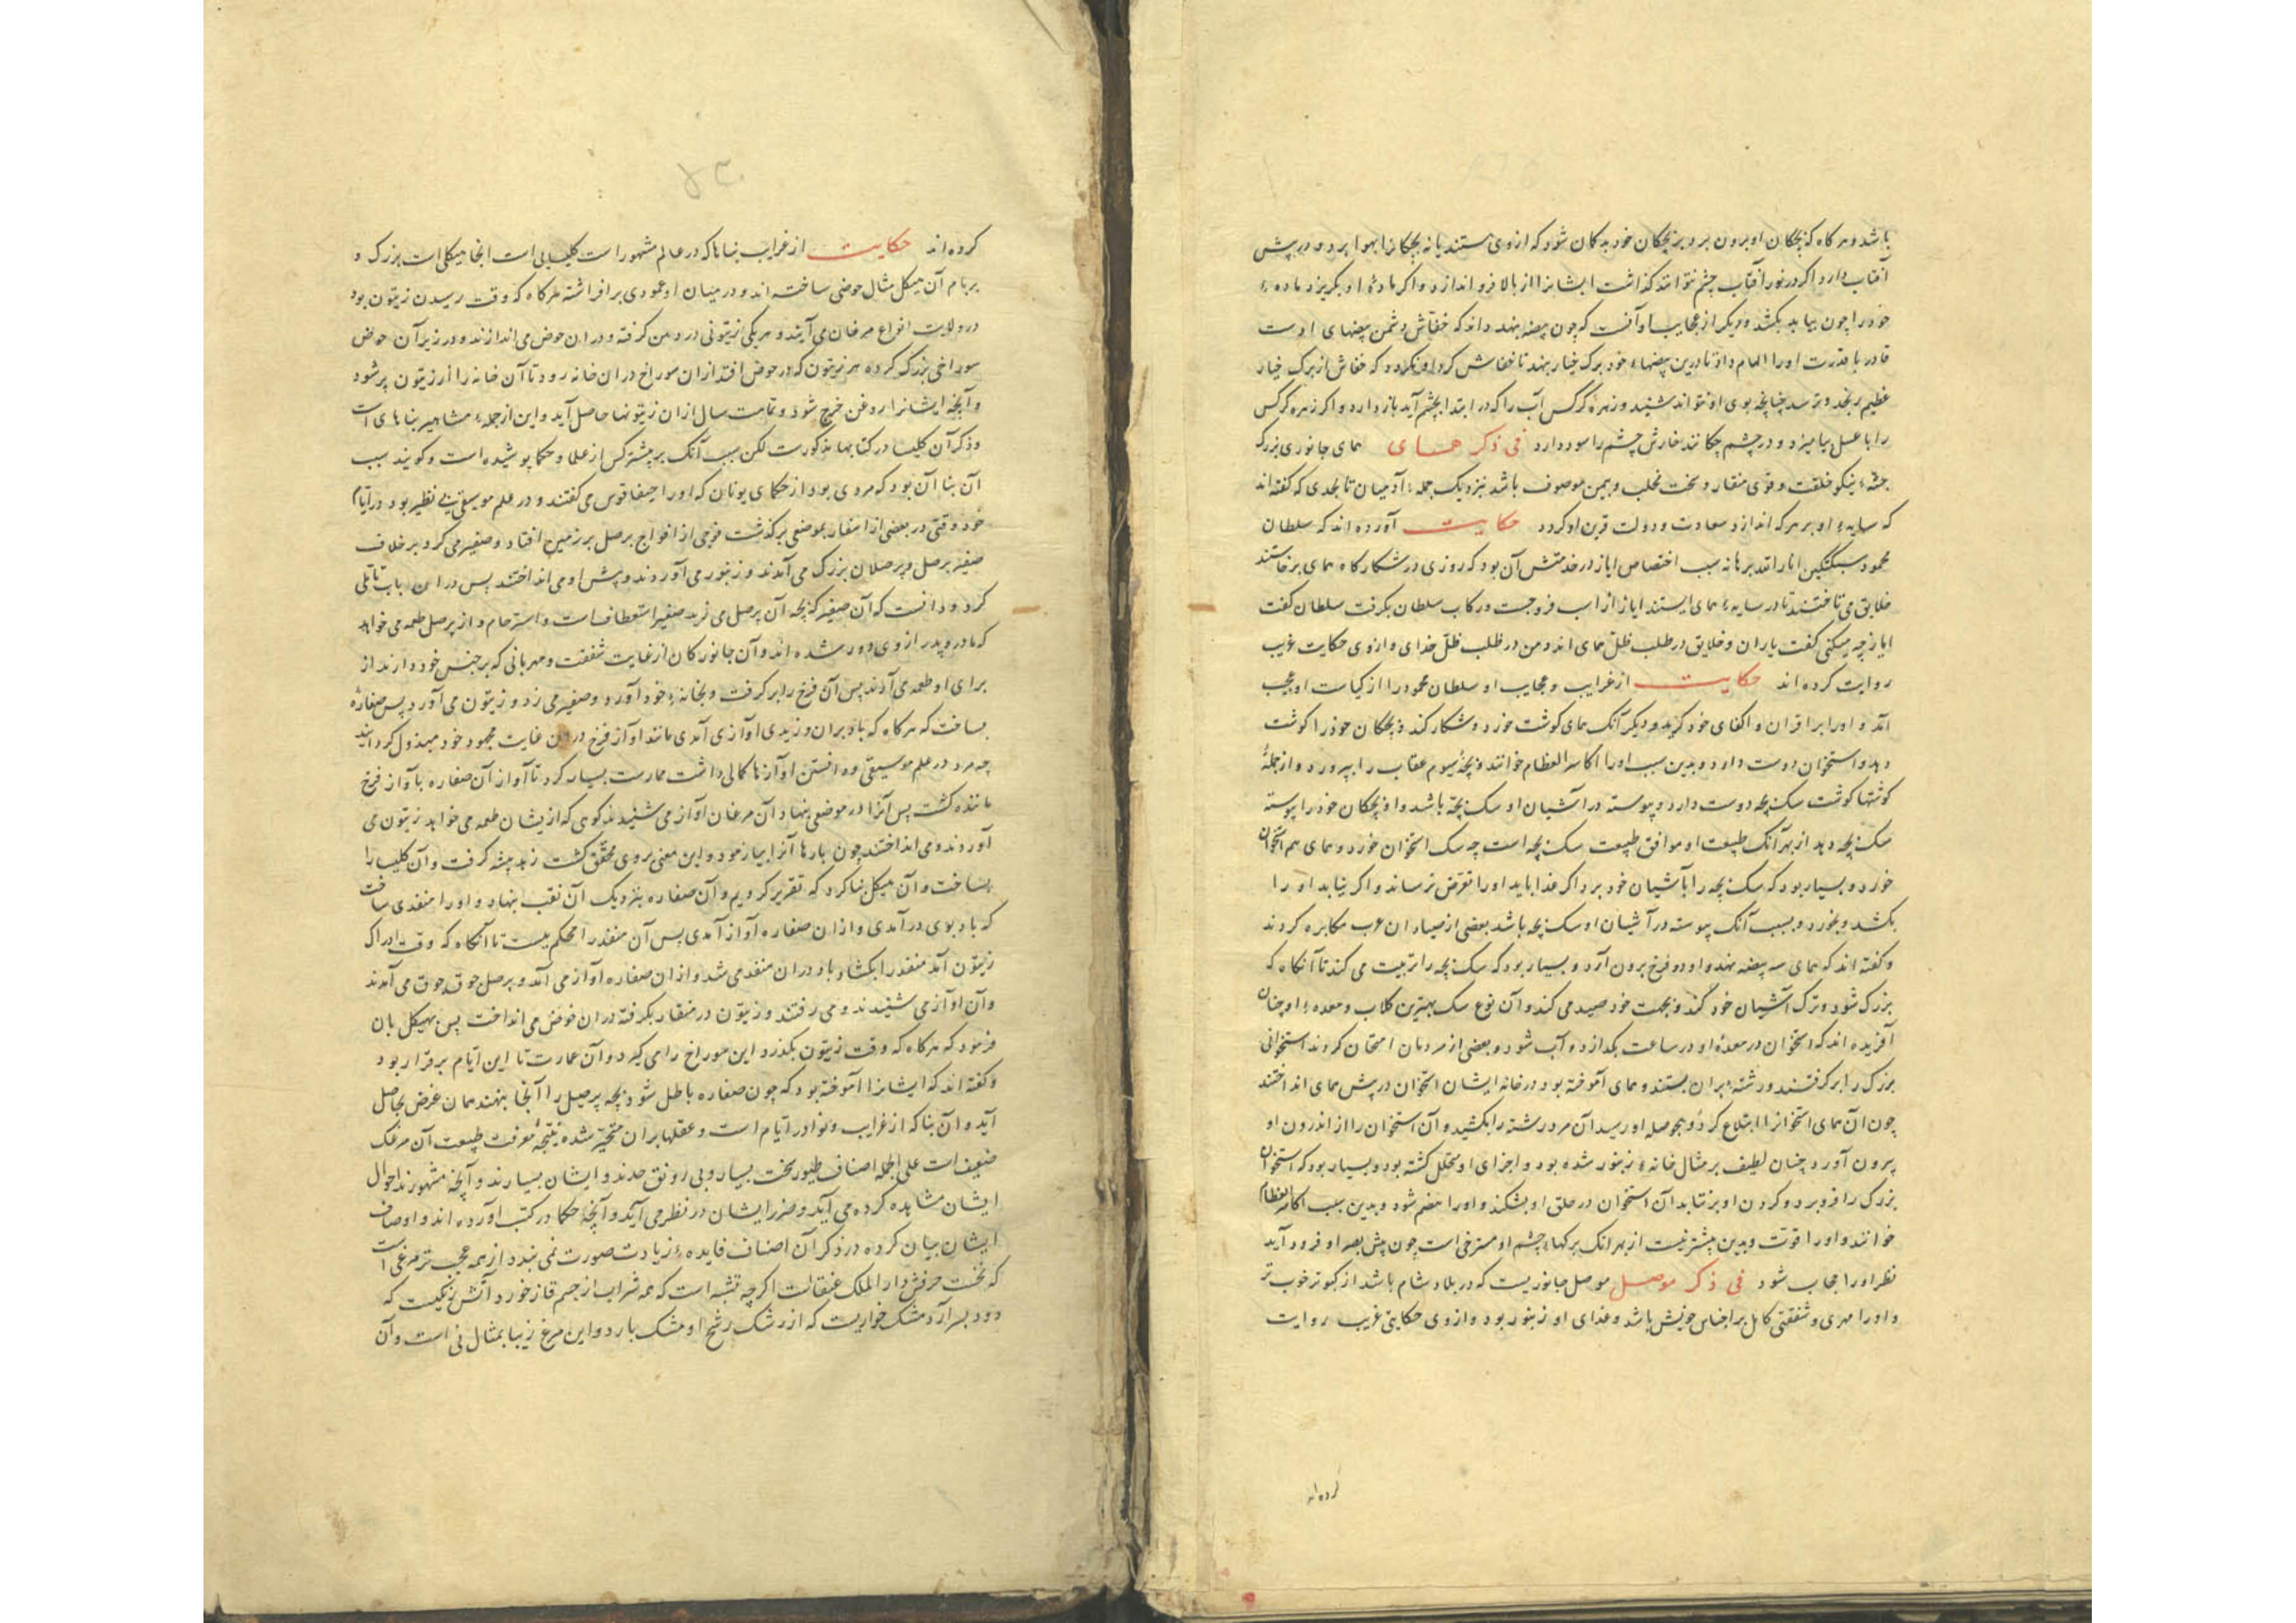 باشد و هر گاه که بچگان او برون برو بر بچگان خود بدگمان شود که از وی هستند یا نه بچگانرا بهوا برد و در پیش
آفتاب دارد اگر در نور آفتاب چشم توانند گذاشت ایشانرا از بالا فرو اندازد و اگر مادهٔ او بگریزد ماده‌ء
خود را چون بیابد بکشد و دیگر از عجایب او آنست که چون بیضه بنهد داند که خفاش دشمن بیضهای اوست
قادر با قدرت او را الهام داد تا درین بیضهاء خود برگ خیار بنهد تا خفاش گرد او نگردد که خفاش از برگ خیار
عظیم برنجد و ترسد چنانچه بوی او نتواند شنید و زهرهٔ کرکس آب را که در ابتدا بچشم آید باز دارد و اگر زهره کرکس
را با عسل بیامیزد و در چشم چکانند خارش چشم را سود دارد فی ذکر همای همای جانوری بزرگ
جثه‌ء نیکو خلقت و قوی منقار و سخت مخلب و بیمن موصوف باشد نزدیک جمله‌ء آدمیان تا بحدی که گفته‌اند
که سایه‌ء او بر هر که اندازد سعادت و دولت قرین او گردد حکایت آورده‌اند که سلطان
محمود سبکتکین انار الله برهانه سبب اختصاص ایاز در خدمتش آن بود که روزی در شکارگاه همای برخاستند
خلایق می‌تاختند تا در سایه‌ء همای ایستند ایاز از اسب فرو جست و رکاب سلطان بگرفت سلطان گفت
ایاز چه میکنی گفت یاران و خلایق در طلب ظل همای اند و من در طلب ظل خدای و از وی حکایت غریب
روایت کرده‌اند حکایت از غرایب و عجایب او سلطان محمود را از کیاست او عجب
آمد و او را بر اقران و اکفای خود گزید و دیگر آنک همای گوشت خورد و شکار کند و بچگان خود را گوشت
دهد و استخوان دوست دارد و بدین سبب او را اکاسر العظام خوانند و بچهٔ سیوم عقاب را بپرورد و از جملهٔ
گوشتها گوشت سک بچه دوست دارد و پیوسته در آشیان او سک بچه باشد و او بچگان خود را پیوسته
سک بچه دهد از بهر آنک طبیعت او موافق طبیعت سک بچه است چه سک استخوان خورد و همای هم استخوان
خورد و بسیار بود که سک بچه را بآشیان خود برد اگر غذا یابد او را تعرض نرساند و اگر نیابد او را
بکشد و بخورد و بسبب آنک پیوسته در آشیان او سک بچه باشد بعضی از صیادان عرب مکابره کردند
و گفته‌اند که همای سه بیضه بنهد و او دو فرخ برون آرد و بسیار بود که سک بچه را تربیت می‌کند تا آنگاه که
بزرگ شود و ترک آشیان خود کند و بجهت خود صید می‌کند و آن نوع سک بهترین کلاب و معده‌ء او چنان
آفریده‌اند که استخوان در معدهٔ او در ساعت بگدازد و آب شود و بعضی از مردمان امتحان کردند استخوانی
بزرگ را بر گرفتند و رشته بران بستند و همای آموخته بود در خانه ایشان استخوان در پیش همای انداختند
چون آن همای استخوانرا ابتلاع کرد و بحوصله او رسید آن مرد رشته را بکشید و آن استخوان را از اندرون او
بیرون آورد چنان لطیف بر مثال خانه‌ء زنبور شده بود و اجزای او متحلل گشته بود و بسیار بود که استخوان
بزرگ را فرو برد و گردن او بر نتابد آن استخوان در حلق او بشکند و او را هضم شود و بدین سبب اکاسر العظام
خوانند و او را قوت و بدین بیشتر نیست از بهر آنک برکهاء چشم او مسترخی است چون پیش بصر او فرود آید
نظر او را حجاب شود فی ذکر موصل موصل جانوریست که در بلاد شام باشد از کبوتر خوب تر
و او را مهری و شفقتی کامل بر اجناس خویش باشد و غذای او زنبور بود و از وی حکایتی غریب روایت
کرده‌اند
کرده‌اند حکایت از غرایب بناها که در عالم مشهور است کلیسایی است انجا هیکلی است بزرگ و
بر بام آن هیکل مثال حوضی ساخته‌اند و در میان او عمودی برافراشته هرگاه که وقت رسیدن زیتون بود
در ولایت انواع مرغان می‌آیند و هر یکی زیتونی در دهن گرفته و دران حوض می‌اندازند و در زیر آن حوض
سوراخی بزرگ کرده هر زیتون که در حوض افتد ازان سوراخ دران خانه رود تا آن خانه را از زیتون پر شود
و آنچه ایشانرا روغن خرج شود و تمامت سال ازان زیتونها حاصل آید و این از جمله‌ء مشاهیر بناهای است
و ذکر آن کلیسا در کتابها مذکورست لکن سبب آنک بر بیشتر کس از علما و حکما پوشیده است و گویند سبب
آن بنا آن بود که مردی بود از حکمای یونان که او را می‌گفتند و در علم موسیقی بی نظیر بود در ایام
خود وقتی در بعضی از اسفار بموضعی برگذشت فرخی از افواج برصل بر زمین افتاد و صفیر می‌کرد بر خلاف
صفیر برصل و برصلان بزرگ می‌آمدند و زنبور می‌آوردند و پیش او می‌انداختند پس دران باب تأملی
کرد و دانست که آن صفیر که بچه آن برصل می‌زند صفیر استعطاف است و استرحام و از برصل طعمه می‌خواهد
که مادر و پدر از وی دور شده‌اند و آن جانورکان از غایت شفقت و مهربانی که بر جنس خود دارند از
برای او طعمه می‌آرند پس آن فرخ را بر گرفت و بخانه‌ء خود آورد و صفیر می‌زد و زیتون می‌آورد پس صفارهٔ
بساخت که هرگاه که باد بران وزیدی آوازی آمدی مانند آواز فرخ در غایت مجهود خود مبذول گردانید
چه مرد در علم موسیقی و دانستن آوازها کمالی داشت ممارست بسیار کرد تا آواز آن صفاره بآواز فرخ
ماننده گشت پس آنرا در موضعی بنهاد و آن مرغان آواز می‌شنیدند که از یشان طعمه می‌خواهد زیتون می
آوردند و می‌انداختند چون بارها آنرا بیازمود و این معنی بروی محقق گشت زهد پیشه گرفت و آن کلیسا را
بساخت و آن هیکل بنا کرد که تقریر کردیم و آن صفاره بنزدیک آن نقب بنهاد و او را منفذی ساخت
که باد بوی در آمدی و ازان صفاره آواز آمدی پس آن منفذ را محکم ببست تا آنگاه که وقت ادراک
زیتون آمد منفذ را بگشاد باد دران منفذ می‌شد و ازان صفاره آواز می‌آمد و برصل جوق جوق می‌آمدند
و آن آواز می‌شنیدند و می‌رفتند و زیتون در منقار بگرفته دران حوض می‌انداخت پس بهیکل بان
فرمود که هرگاه که وقت زیتون بگذرد این سوراخ را می‌گیرد و آن عمارت تا این ایام برقرار بود
و گفته‌اند که ایشانرا آموخته بود که چون صفاره باطل شود بچه برصل را آنجا بنهند همان غرض بحاصل
آید و آن بنا که از غرایب و نوادر ایام است و عقلها بران متحیر شده نتیجهٔ معرفت طبیعت آن مرغک
ضعیف است علی الجمله اصناف طیور سخت بسیار و بی رونق حدند و ایشان بسیارند و آنچه مشهورند احوال
ایشان مشاهده کرده می‌آید و ضرر ایشان در نظر می‌آید و آنچه حکما در کتب آورده‌اند و اوصاف
ایشان بیان کرده در ذکر آن اصناف فایده‌ء زیادت صورت نمی بندد از همه عجب تر مرغی است
که نخست حرفش دار الملک عنقاست اگرچه تشبه است که همه شراب از جسم قاز خورد آتش رنگیست که
دود بسر آرد مشک خواریست که از رشک رشح او مشک بارد و این مرغ زیبا بمثال نی است و آن